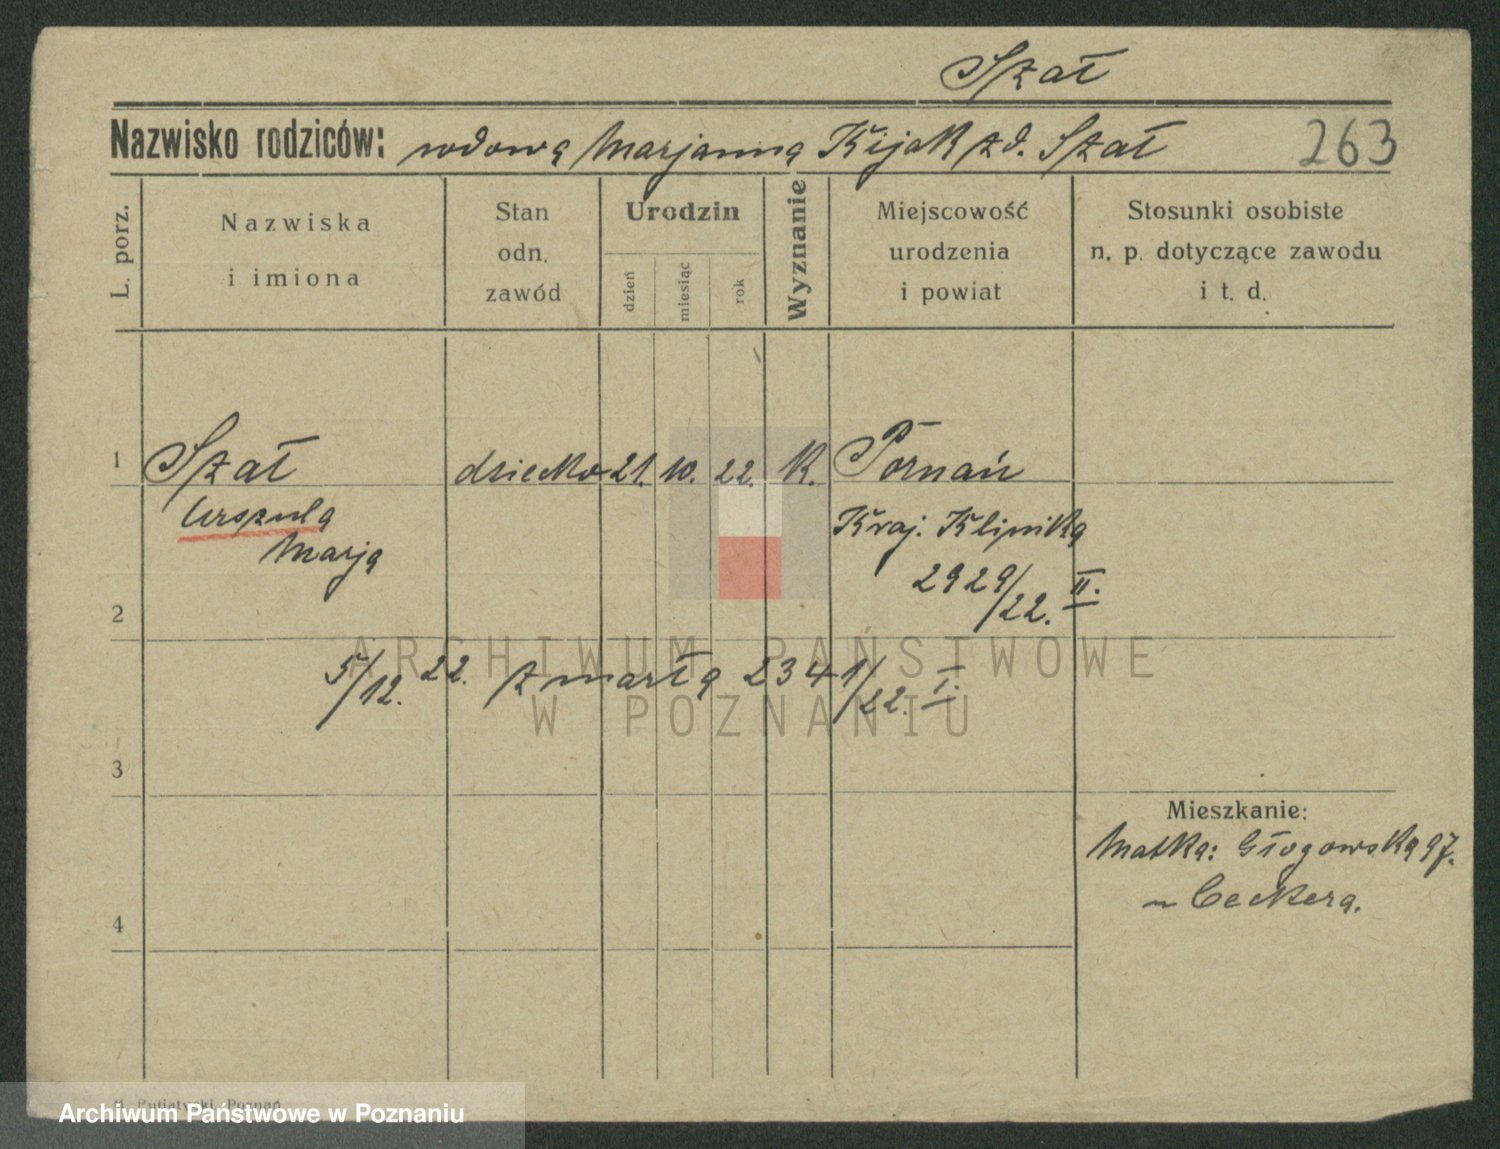 Szał
Nazwisko rodziców: wdowa Marjanna Kijak zd. Szał 263
L. porz.
Nazwiska
i imiona
Stan
odn.
zawód
Urodzin
dzień
miesiąc
rok
Wyznanie
Miejscowość
urodzenia
i powiat
Stosunki osobiste
n. p. dotyczące zawodu
i t. d.
1 Szał dziecko 21. 10. 22. k. Poznań
Urszula Kraj. Klinika
Marja
2929/22. II.
2
5/12. 22. zmarła 2341/22. I.
ARCHIWUM PAŃSTWOWE
W POZNANIU
3
Mieszkanie:
Matka: Głogowska 97.
4
Putiatycki, Poznań
Archiwum Państwowe w Poznaniu